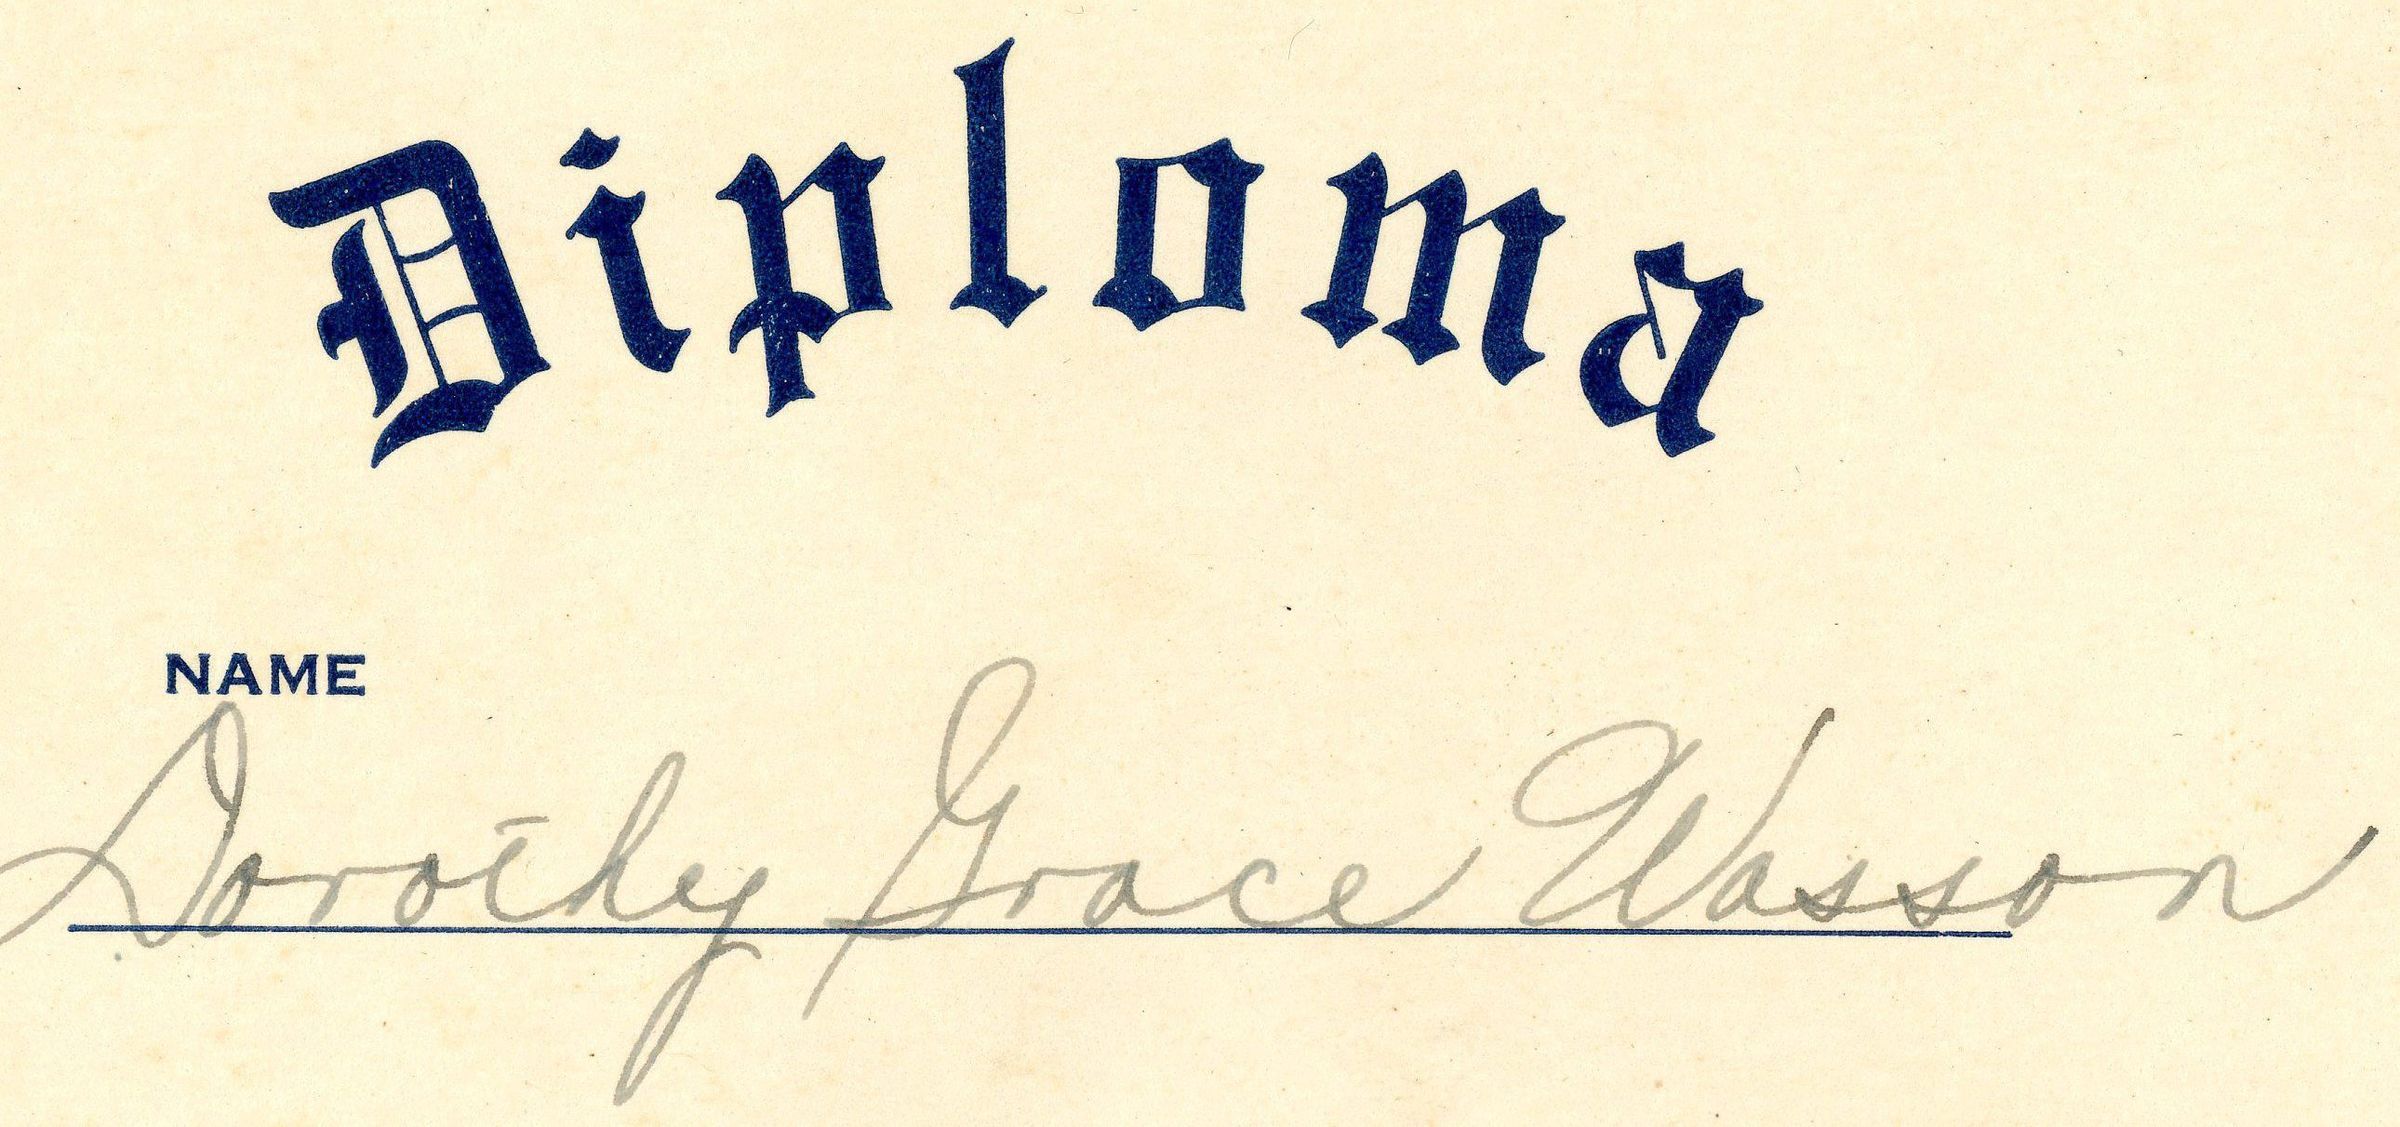 Diploma
NAME
Dorothy Grace Wasson